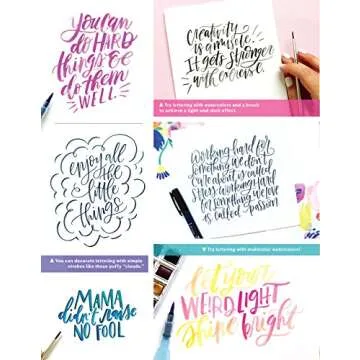 you can
do HARD
things &
do them
WELL.
Creativity
is a muscle.
It gets stronger
with exercise.
▲ Try lettering with watercolors and a brush
to achieve a light and dark effect.
enjoy all
the
little
things
▲ You can decorate lettering with simple
strokes like these puffy "clouds."
Working hard for
something we don't
care about is called
stress working hard
for something we love
is called passion
▼ Try lettering with multicolor watercolors!
MAMA
didn't raise
NO FOOL
let your
WEIRD LIGHT
shine bright